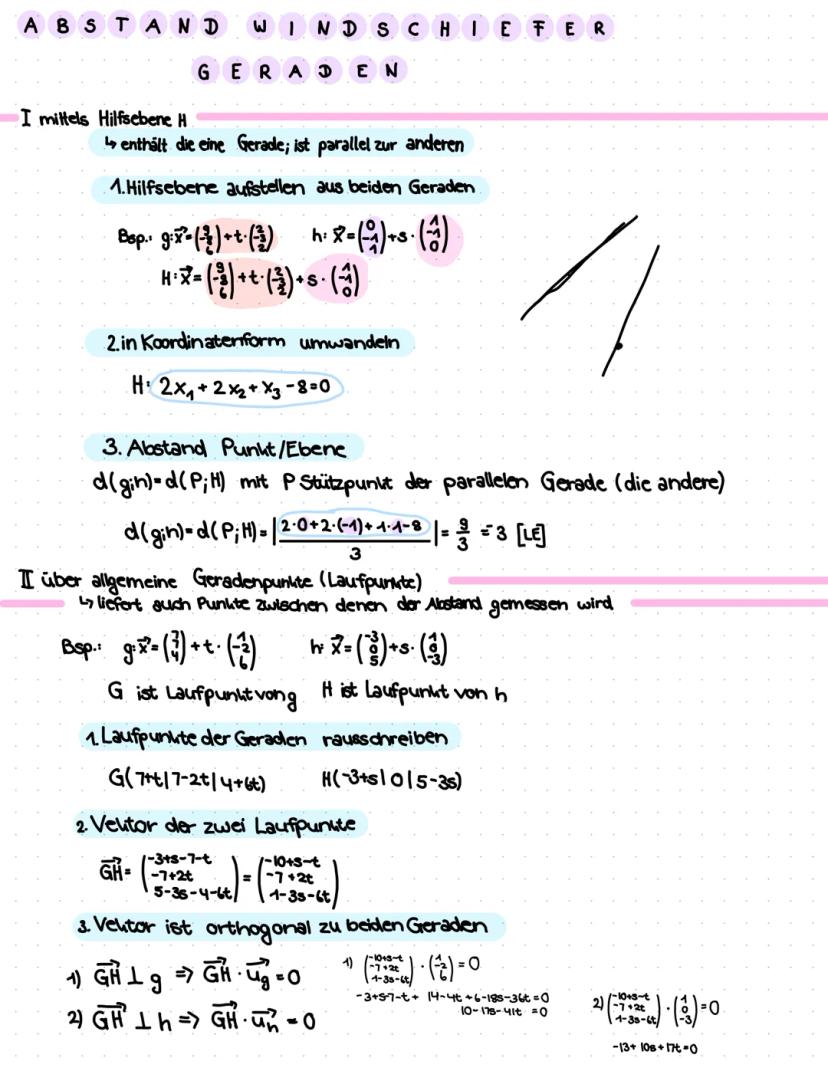 ABSTAND WINDSCHIEFER
GERADEN
I mittels Hilfsebene H
↳ enthält die eine Gerade; ist parallel zur anderen
1. Hilfsebene aufstellen aus beiden Geraden
Bsp.: g: x⃗ = (9 -8 6) + t · (2 -3 2) h: x⃗ = (0 -1 1) + s · (1 -1 0)
H: x⃗ = (9 -8 6) + t · (2 -3 2) + s · (1 -1 0)
2. in Koordinatenform umwandeln
H: 2x₁ + 2x₂ + x₃ - 8 = 0
3. Abstand Punkt/Ebene
d(g;h) = d(P;H) mit P Stützpunkt der parallelen Gerade (die andere)
d(g;h) = d(P;H) = |2·0+2·(-1)+1·1-8 / 3| = 9/3 = 3 [LE]
II über allgemeine Geradenpunkte (Laufpunkte)
↳ liefert auch Punkte zwischen denen der Abstand gemessen wird
Bsp.: g: x⃗ = (7 7 4) + t · (1 -2 6) h: x⃗ = (-3 0 5) + s · (1 0 -3)
G ist Laufpunkt von g H ist Laufpunkt von h
1. Laufpunkte der Geraden rausschreiben
G(7+t|7-2t|4+6t) H(-3+s|0|5-3s)
2. Vektor der zwei Laufpunkte
GH⃗ = (-3+s-7-t -7+2t 5-3s-4-6t) = (-10+s-t -7+2t 1-3s-6t)
3. Vektor ist orthogonal zu beiden Geraden
1) GH⃗ ⊥ g ⇒ GH⃗ · u⃗g = 0 1) (-10+s-t -7+2t 1-3s-6t) · (1 -2 6) = 0
-3+s-7-t + 14-4t + 6-18s-36t = 0
10-17s-41t = 0
2) GH⃗ ⊥ h ⇒ GH⃗ · u⃗h = 0 2) (-10+s-t -7+2t 1-3s-6t) · (1 0 -3) = 0
-13 + 10s + 17t = 0